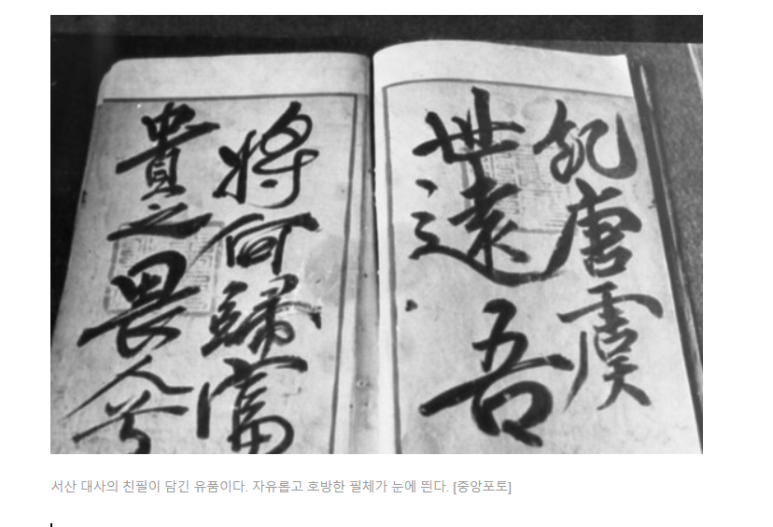 飢唐虞
世遠吾
將何歸富
貴之畏人兮
서산 대사의 친필이 담긴 유품이다. 자유롭고 호방한 필체가 눈에 띈다. [중앙포토]